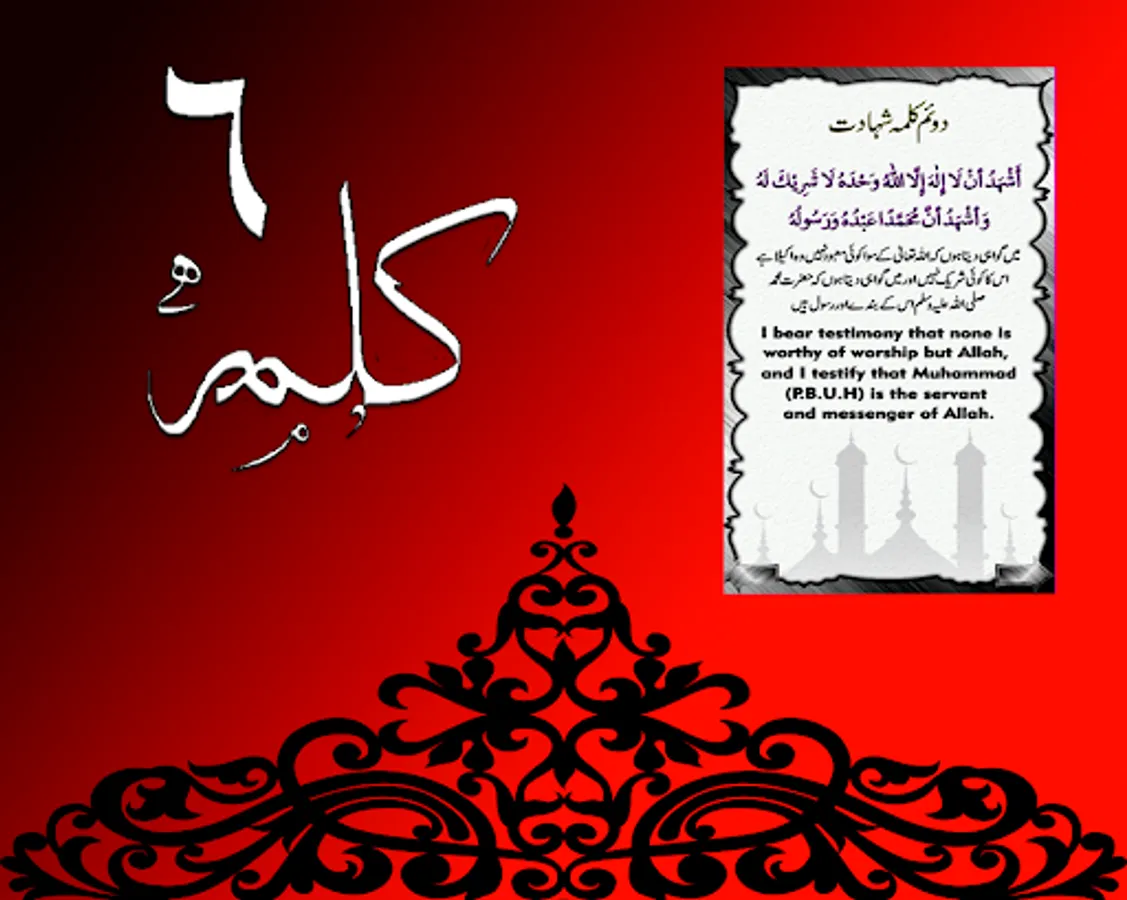 ٦
کلمے
دوئم کلمہ شہادت
أَشْهَدُ أَنْ لَا إِلٰهَ إِلَّا اللهُ وَحْدَهُ لَا شَرِيْكَ لَهُ
وَأَشْهَدُ أَنَّ مُحَمَّدًا عَبْدُهُ وَرَسُولُهُ
میں گواہی دیتا ہوں کہ اللہ تعالیٰ کے سوا کوئی معبود نہیں وہ اکیلا ہے
اس کا کوئی شریک نہیں اور میں گواہی دیتا ہوں کہ حضرت محمد
صلی اللہ علیہ وسلم اس کے بندے اور رسول ہیں
I bear testimony that none is
worthy of worship but Allah,
and I testify that Muhammad
(P.B.U.H) is the servant
and messenger of Allah.